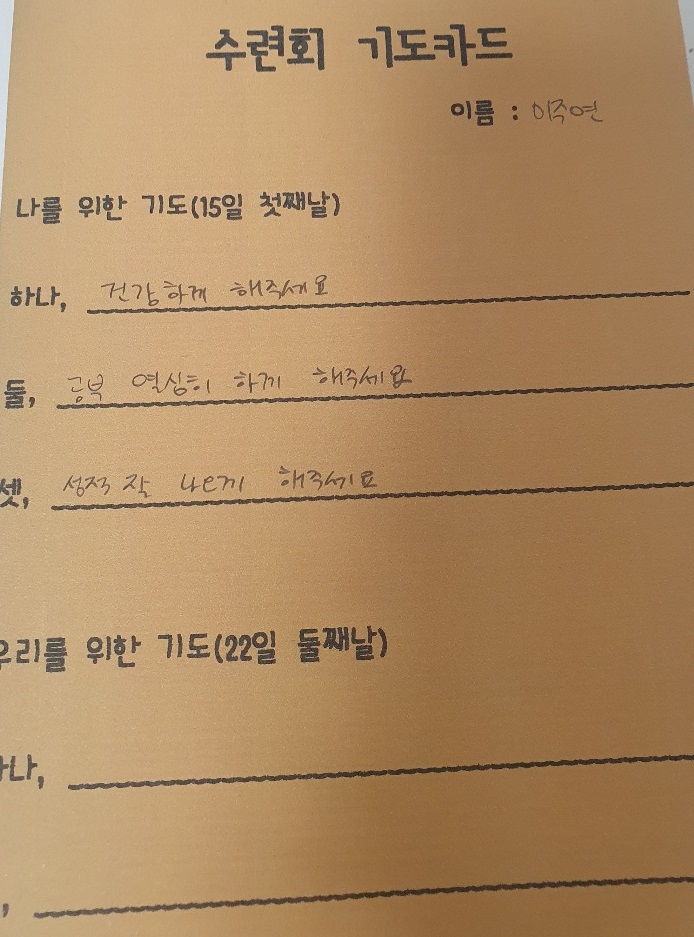 수련회 기도카드
이름 : 이주연
나를 위한 기도(15일 첫째날)
하나, 건강하게 해주세요
둘, 공부 열심히 하게 해주세요
셋, 성적 잘 나오게 해주세요
우리를 위한 기도(22일 둘째날)
하나,
,